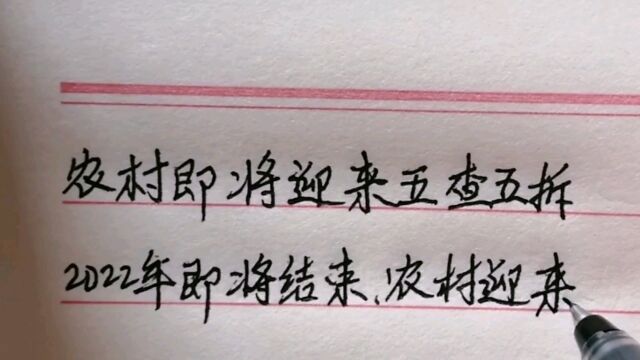 农村即将迎来五查五拆
2022年即将结束,农村迎来